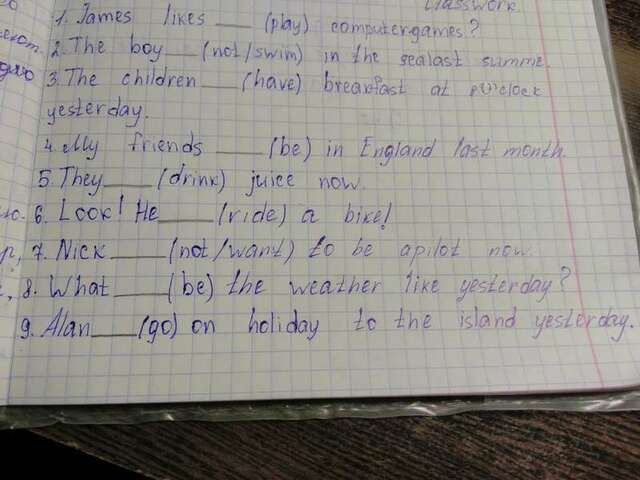 Classwork.
1. James likes ___ (play) computergames?
2. The boy ___ (not/swim) in the sealast summe.
3. The children ___ (have) breakfast at o'clock
yesterday.
4. My friends ___ (be) in England last month.
5. They ___ (drink) juice now.
6. Look! He ___ (ride) a bike!
7. Nick ___ (not/want) to be apilot now.
8. What ___ (be) the weather like yesterday?
9. Alan ___ (go) on holiday to the island yesterday.